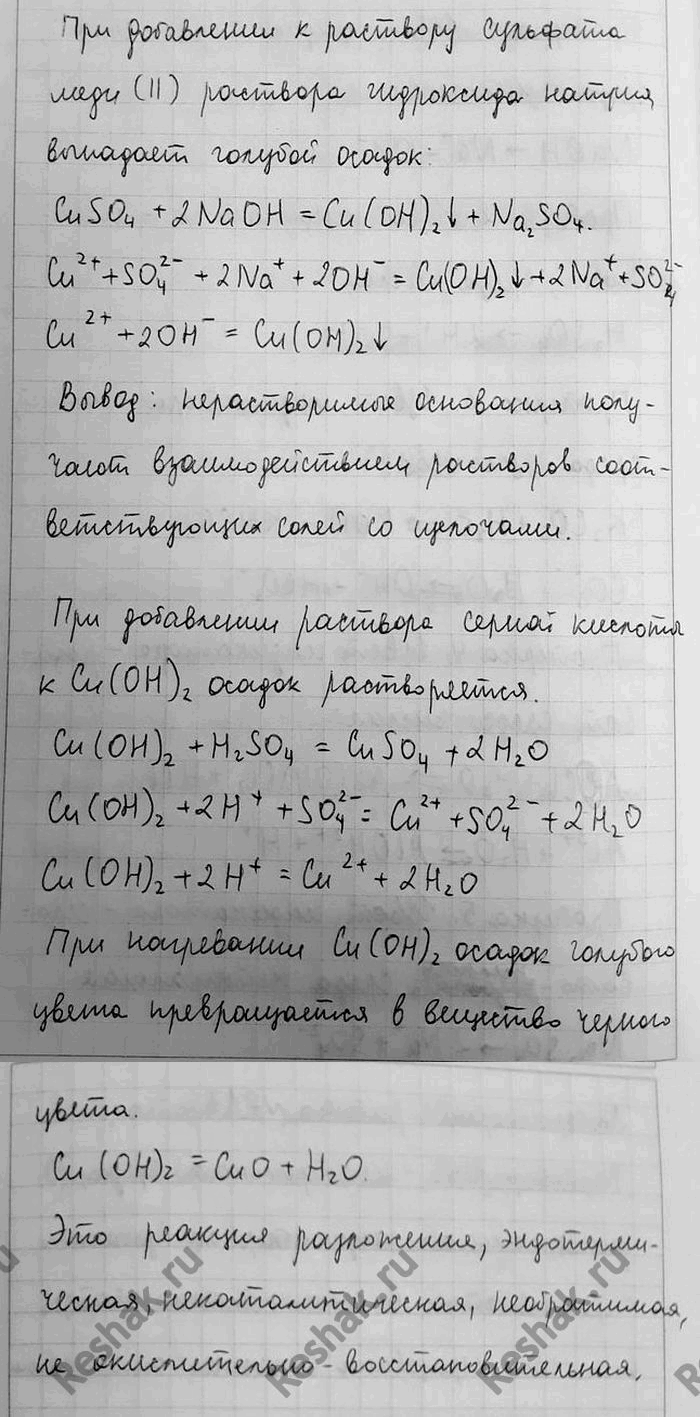 При добавлении к раствору сульфата
меди (II) раствора гидроксида натрия
выпадает голубой осадок:
CuSO₄ + 2NaOH = Cu(OH)₂↓ + Na₂SO₄.
Cu²⁺ + SO₄²⁻ + 2Na⁺ + 2OH⁻ = Cu(OH)₂↓ + 2Na⁺ + SO₄²⁻
Cu²⁺ + 2OH⁻ = Cu(OH)₂↓
Вывод: нерастворимые основания полу-
чают взаимодействием растворов соот-
ветствующих солей со щелочами.
При добавлении раствора серной кислоты
к Cu(OH)₂ осадок растворяется.
Cu(OH)₂ + H₂SO₄ = CuSO₄ + 2H₂O
Cu(OH)₂ + 2H⁺ + SO₄²⁻ = Cu²⁺ + SO₄²⁻ + 2H₂O
Cu(OH)₂ + 2H⁺ = Cu²⁺ + 2H₂O
При нагревании Cu(OH)₂ осадок голубого
цвета превращается в вещество черного
цвета.
Cu(OH)₂ = CuO + H₂O.
Это реакция разложения, эндотерми-
ческая, некаталитическая, необратимая,
не окислительно-восстановительная.
Reshak.ru
Reshak.ru
Reshak.ru